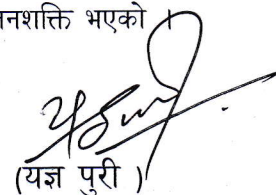 नशक्ति भएको ।
(यज्ञ पुरी )